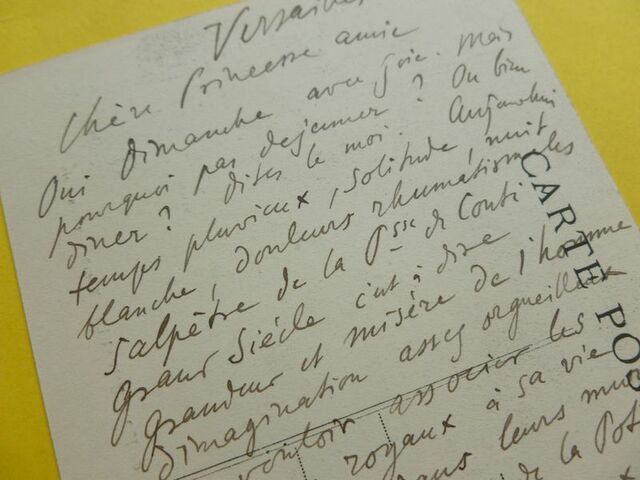 Versailles
Chère Princesse amie
Oui dimanche avec joie. Mais
pourquoi pas dejeuner ? Ou bien
diner ? dites le moi. Aujourdhui
temps pluvieux, solitude, nuit
blanche, douleurs rhumatismales
salpêtre de la Psse de Conti
Grand Siècle c'est à dire
Grandeur et misère de l'homme
d'imagination assez orgueilleux
vouloir associer les
royaux à sa vie
dans leurs murs
de la Pot
CARTE POS